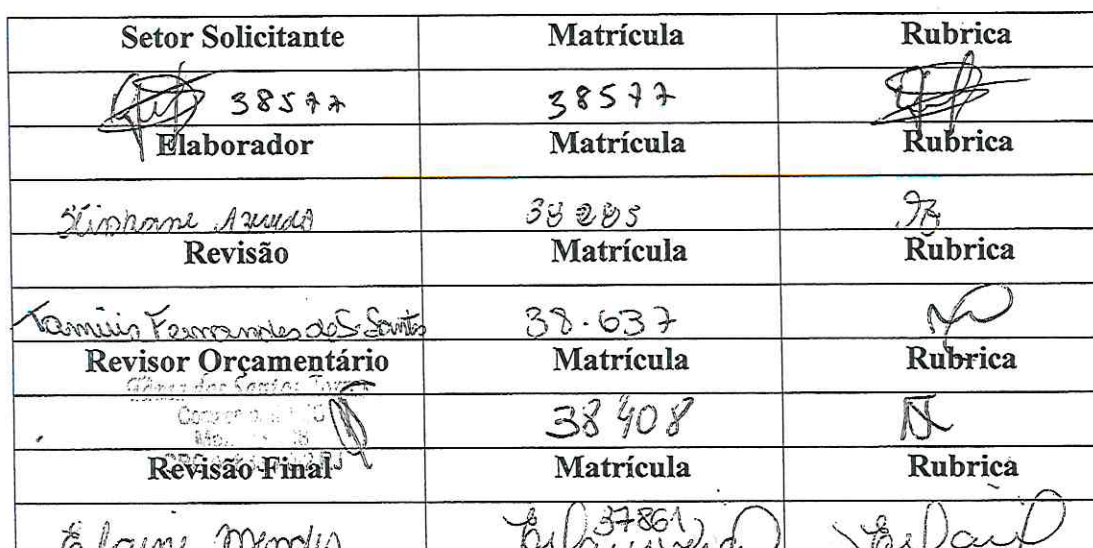 Setor Solicitante Matrícula Rubrica
38577 38577
Elaborador Matrícula Rubrica
Stephane Azevedo 38285
Revisão Matrícula Rubrica
Tamiris Fernandes de S. Santos 38.637
Revisor Orçamentário Matrícula Rubrica
38408
Revisão Final Matrícula Rubrica
Elaine Mendes 37861